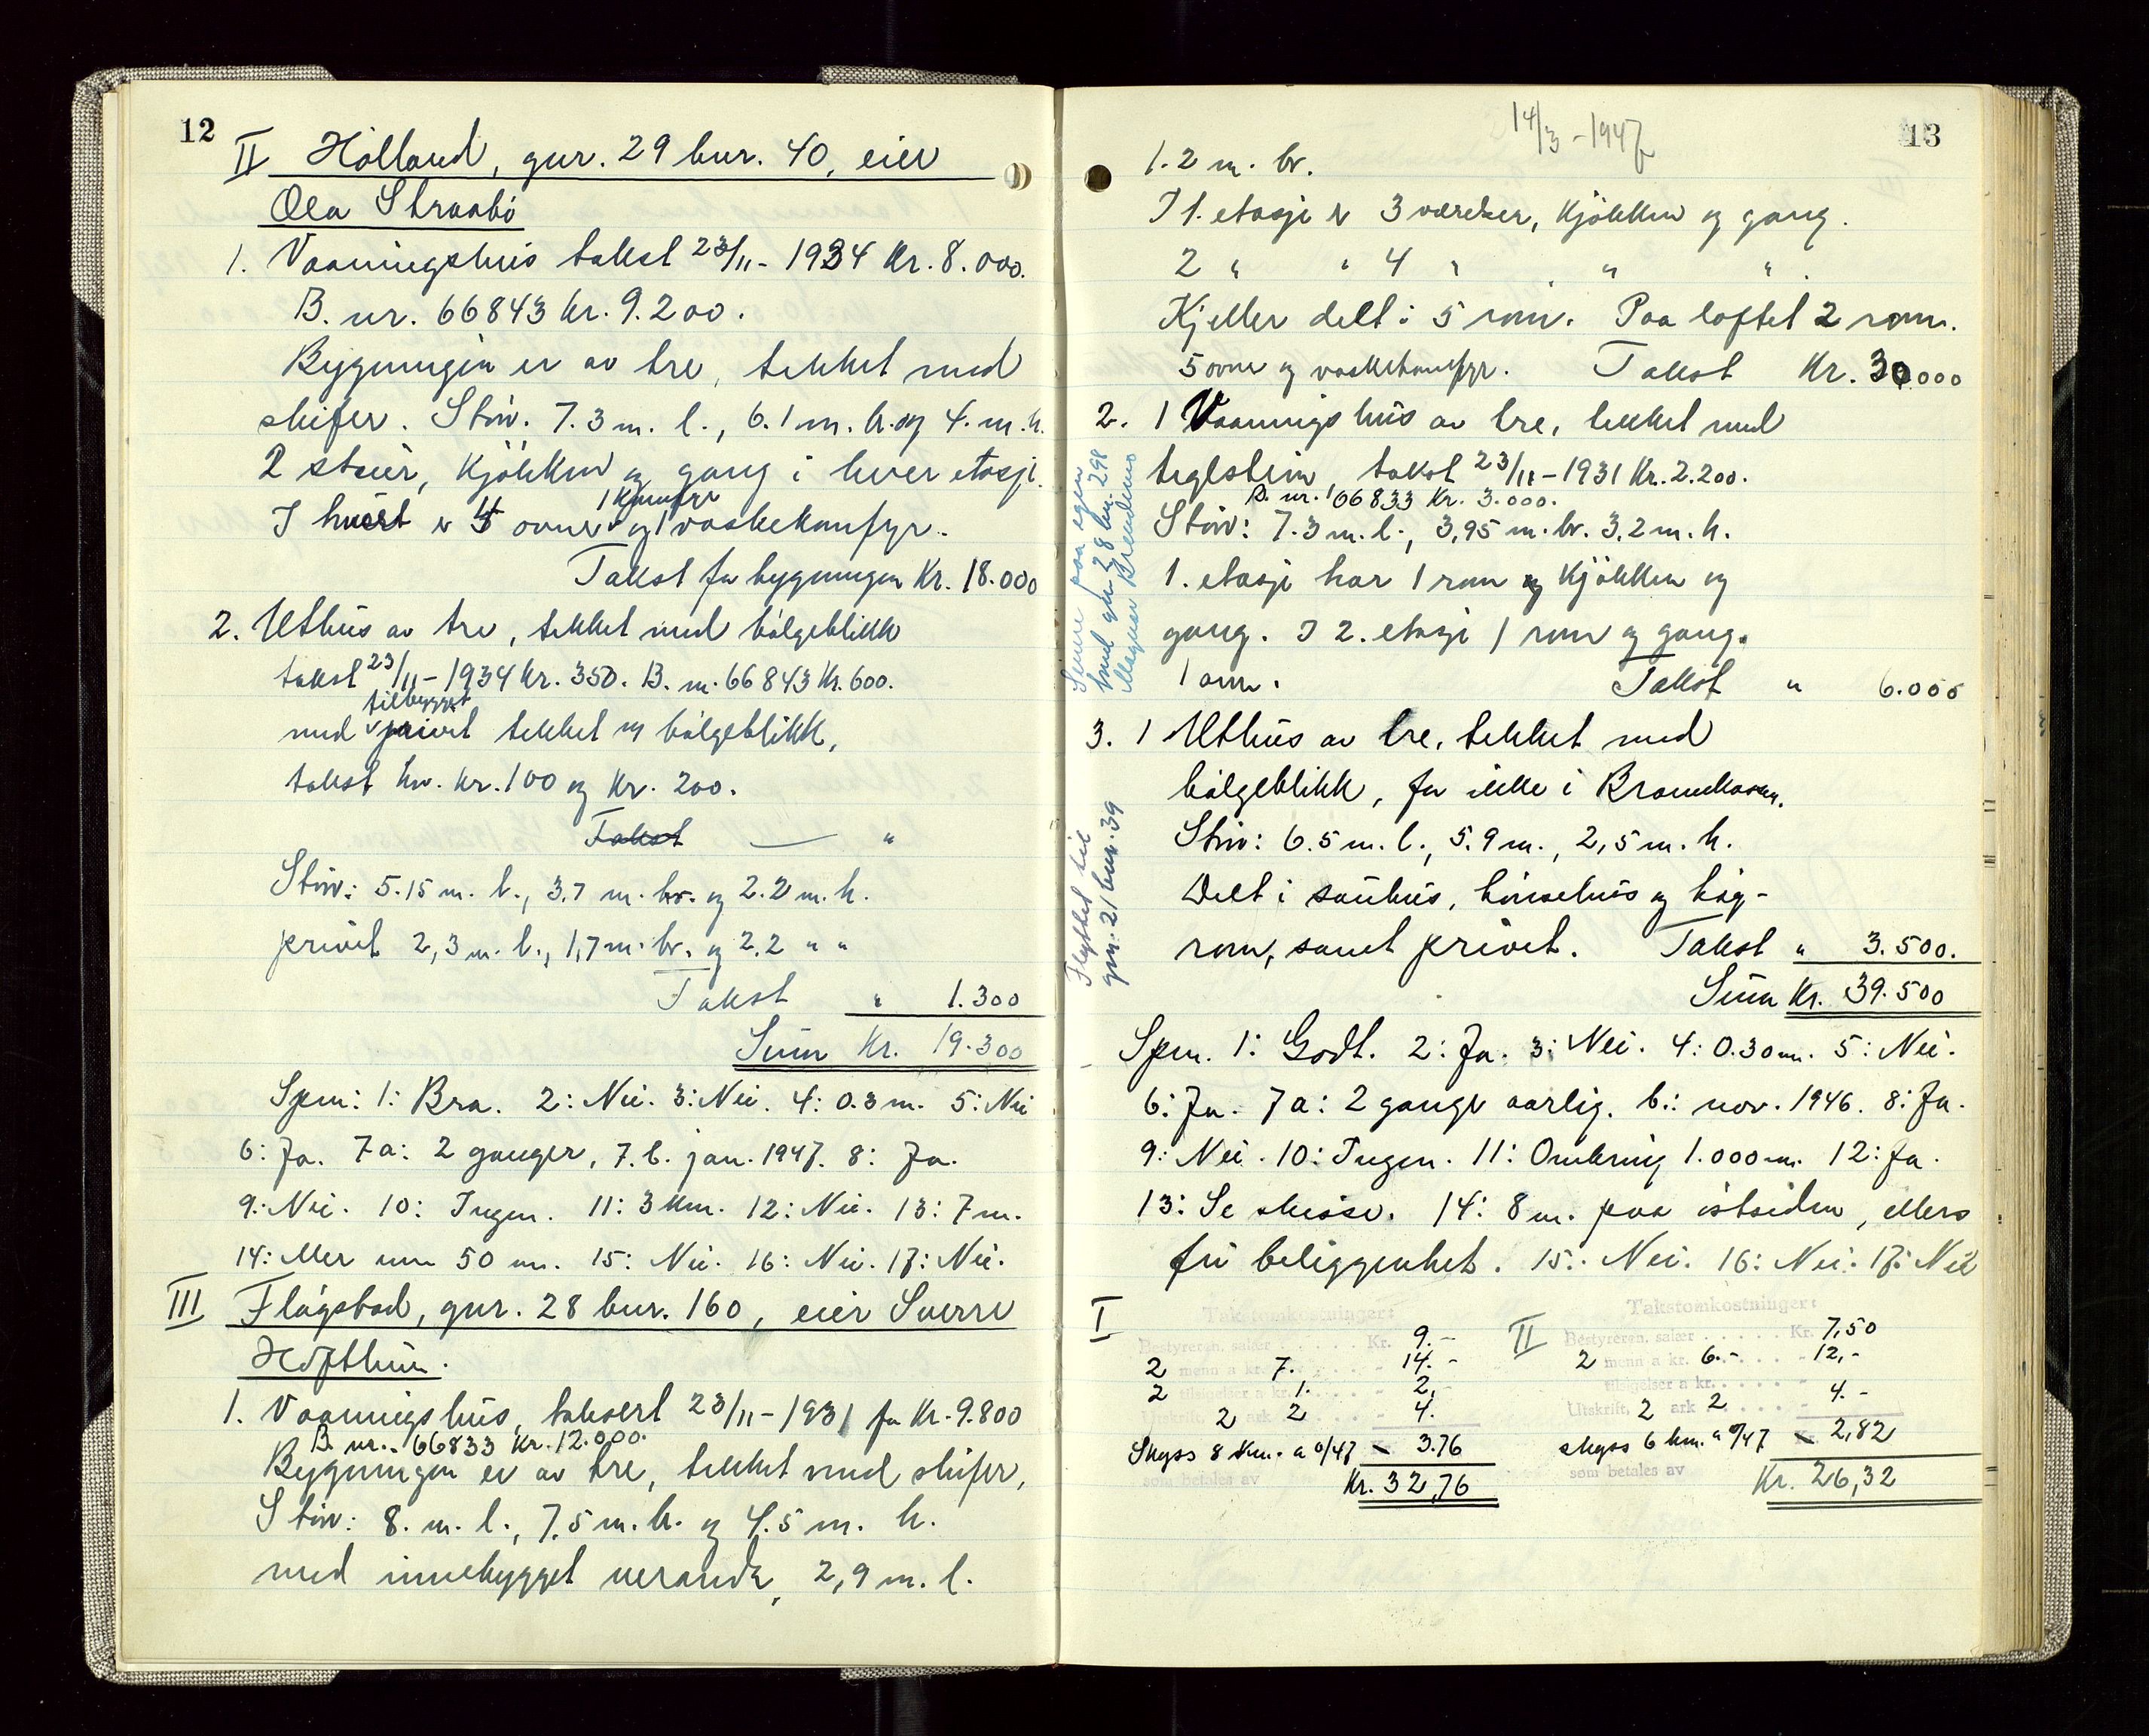 12
II Hölland, gnr. 29 bnr. 40, eier
Ola Straabö
1. Vaaningshus takst 23/11 - 1934 Kr. 8.000.
B. nr. 66843 kr. 9.200.
Bygningen er av tre, tekket med
skifer. Störr. 7.3 m. l., 6.1 m. br. og 4. m. h.
2 stuer, kjökken og gang i hver etasje.
1 komfyr
I huset er 4 ovner og 1 vaskekomfyr.
Takst for bygningen Kr. 18.000
2. Uthus av tre, tekket med bölgeblikk
takst 23/11 - 1934 Kr. 350. B. nr. 66843 Kr. 600.
tilbygget
med privet tekket m bölgeblikk,
takst hv. kr. 100 og kr. 200.
Takst — "
Störr: 5.15 m. l., 3.7 m. br. og 2.2 m. h.
privet 2,3 m. l., 1,7 m. br. og 2.2 " "
Takst " 1.300
Sum Kr. 19.300
Spm: 1: Bra. 2: Nei. 3: Nei. 4: 0.3 m. 5: Nei
6: Ja. 7a: 2 ganger, 7.b. jan. 1947. 8: Ja.
9: Nei. 10: Ingen. 11: 3 km. 12: Nei. 13: 7 m.
14: Mer enn 50 m. 15: Nei. 16: Nei. 17: Nei.
III Flögstad, gnr. 28 bnr. 160, eier Sverre
Hofthun.
1. Vaaningshus, taksert 23/11 - 1931 for Kr. 9.800
B. nr. 66833 kr. 12.000.
Bygningen er av tre, tekket med skifer,
Störr: 8. m. l., 7.5 m. br. og 4.5 m. h.
med innebygget veranda, 2,9 m. l.
14/3 - 1947
13
1.2 m. br.
I 1. etasje er 3 værelser, kjökken og gang.
2 " " 4 " " " .
Kjeller delt i 5 rom. Paa loftet 2 rom.
5 ovner og vaskekomfyr. Takst Kr. 30.000
2. 1 Vaaningshus av tre, tekket med
teglstein, takst 23/11 - 1931 Kr. 2.200.
B. nr. 66833 Kr. 3.000.
Störr: 7.3 m. l., 3,95 m. br. 3,2 m. h.
1. etasje har 1 rom og kjökken og
gang. I 2. etasje 1 rom og gang.
1 ovn. Takst " 6.000
3. 1 Uthus av tre, tekket med
bölgeblikk, för ikke i Brannkassen.
Störr: 6.5 m. l., 5.9 m., 2,5 m. h.
Delt i sauhus, hönsehus og höy-
rom, samt privet. Takst " 3.500.
Sum Kr. 39.500
Spm. 1: Godt. 2: Ja. 3: Nei. 4: 0.30 m. 5: Nei.
6: Ja. 7a: 2 ganger aarlig. b.: nov. 1946. 8: Ja.
9: Nei. 10: Ingen. 11: Omkring 1.000 m. 12: Ja.
13: Se skisse. 14: 8 m. paa östsiden, ellers
fri beliggenhet. 15: Nei. 16: Nei. 17: Nei
Senere paa egen
bnd gnr 28 bnr. 298
Magnar
Flyttet til
gnr. 21 bnr. 39
I
Takstomkostninger:
Bestyreren, salær Kr. 9.-
2 menn a kr. 7. - 14.-
2 tilsigelser a kr. 1. - 2,-
Utskrift, 2 ark 2 - 4.
Skyss 8 km. a 0/47 - 3.76
som betales av Kr. 32,76
II
Takstomkostninger:
Bestyreren, salær Kr. 7,50
2 menn a kr. 6.- - 12,-
tilsigelser a kr.
Utskrift, 2 ark 2 - 4.-
skyss 6 km. a 0/47 - 2,82
som betales av Kr. 26,32